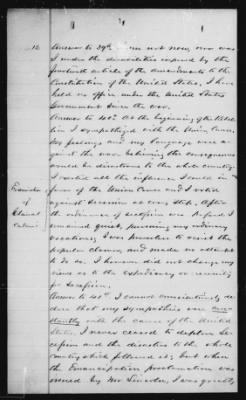 12
Answer to 39th I am not now, nor was
I under the disabilities imposed by the
fourteenth article of the amendments to the
Constitution of the United States, I have
held no office under the United States
Government since the war.
Answer to 40th At the beginning of the Rebel
lion I sympathized with the Union Cause,
My feelings and my language were a-
gainst the war, believing the consequences
would be disastrous to the whole country.
I exerted all the influence I could in
favor of the Union Cause and I voted
against Secession at every step. After
the ordinance of secession was I
remained quiet, pursuing my ordinary
vocations; I was powerless to resist the
popular clamor, and made no attempt
to do so. I however did not change my
views as to the expediency or necessity
for Secession.
Answer to 41st I cannot conscientiously de
clare that my sympathies were con
stantly with the cause of the United
States. I never ceased to deplore Se-
cession and the disasters to the whole
country which followed it; but when
the Emancipation proclamation was
issued by Mr Lincoln, I was greatly
Execution
of
Claimant